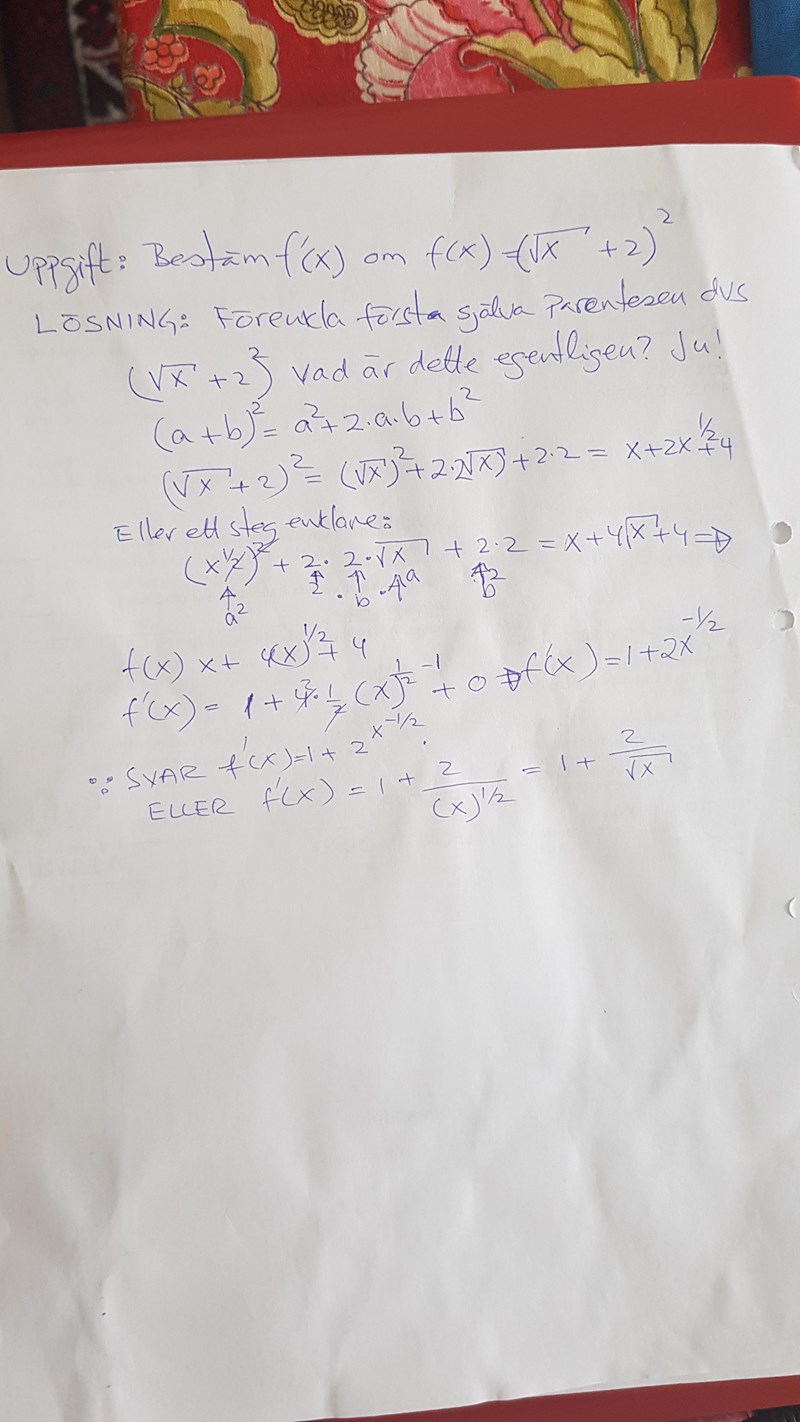 Uppgift: Bestäm f'(x) om f(x) = (√x + 2)²
LÖSNING: Förenkla först själva Parentesen dvs
(√x + 2)² Vad är dette egentligen? Ju!
(a+b)² = a² + 2·a·b + b²
(√x + 2)² = (√x)² + 2·2√x) + 2·2 = x + 2x^1/2 + 4
Eller ett steg enklare:
(x^1/2)² + 2·2·√x + 2·2 = x + 4√x + 4 ⇒
a² 2 · b · a b²
f(x) x + 4(x)^1/2 + 4
f'(x) = 1 + 4² · 1/2 (x)^1/2 -1 + 0 ⇒ f'(x) = 1 + 2x^-1/2
∵ SVAR f'(x) = 1 + 2^x^-1/2.
ELLER f'(x) = 1 + 2/(x)^1/2 = 1 + 2/√x